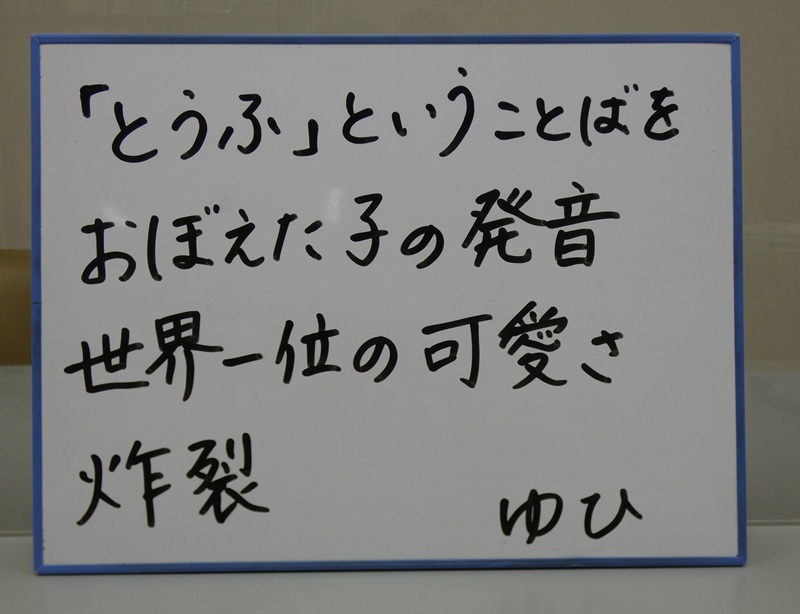 「とうふ」ということばを
おぼえた子の発音
世界一位の可愛さ
炸裂
ゆひ